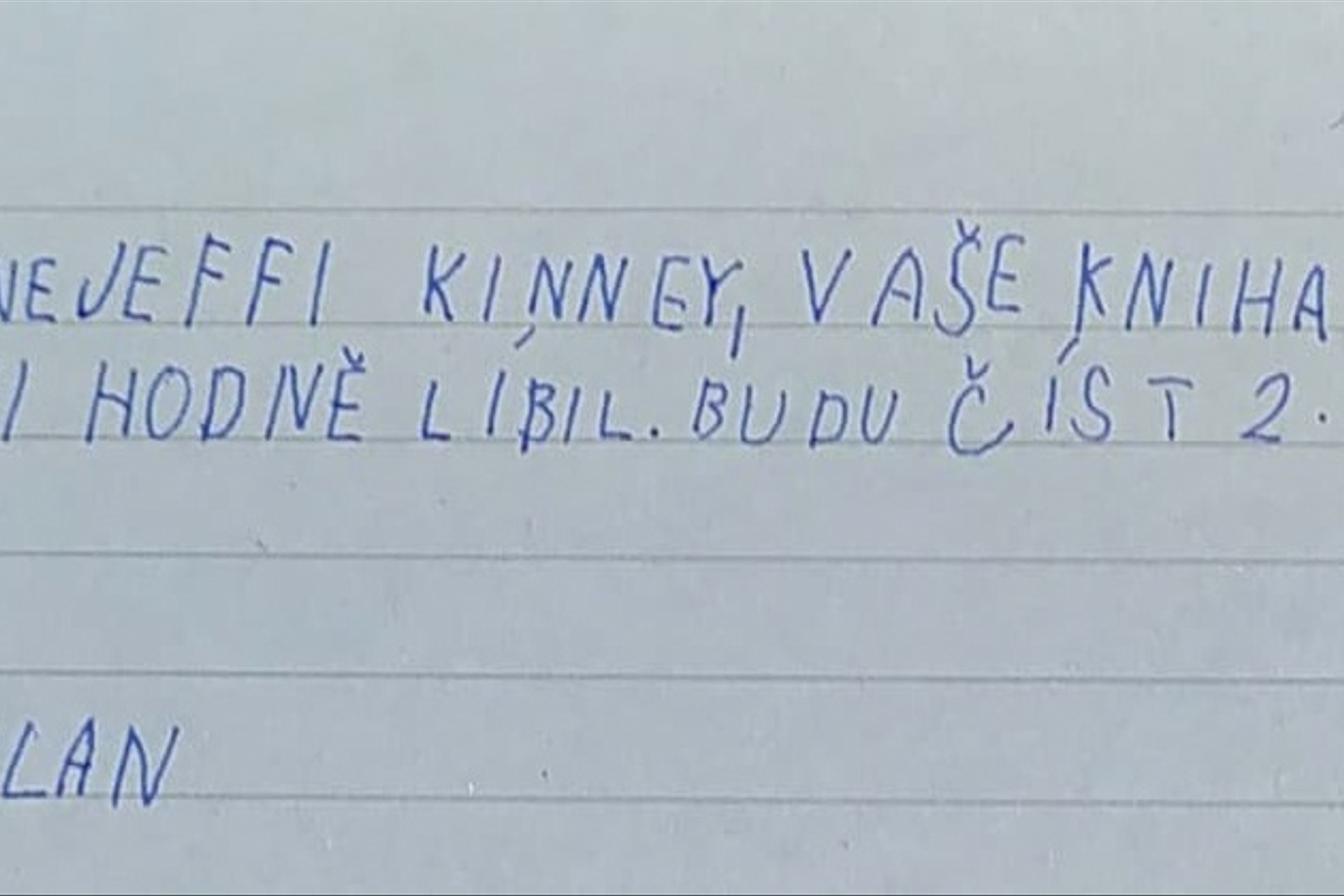 NEJEFFI KINNEY, VAŠE KNIHA
I HODNĚ LÍBIL. BUDU ČÍST 2.
LAN